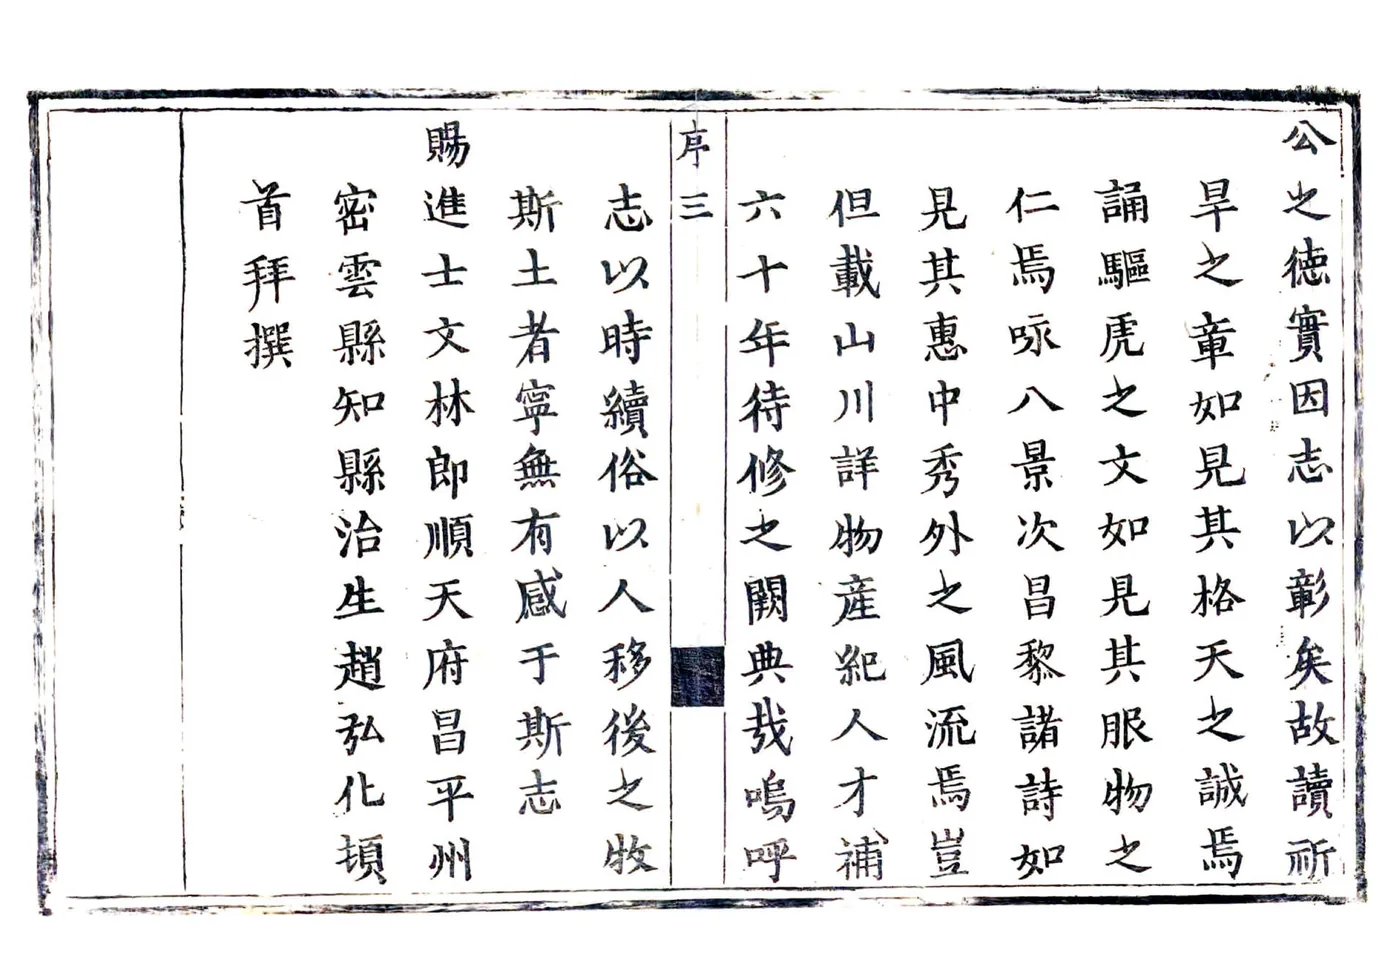 公之德實因志以彰矣故讀祈
旱之章如見其格天之誠焉
誦驅虎之文如見其服物之
仁焉咏八景次昌黎諸詩如
見其惠中秀外之風流焉豈
但載山川詳物産紀人才補
六十年待修之闕典哉嗚呼
序三
志以時續俗以人移後之牧
斯土者寧無有感于斯志
賜進士文林郎順天府昌平州
密雲縣知縣治生趙弘化頓
首拜撰